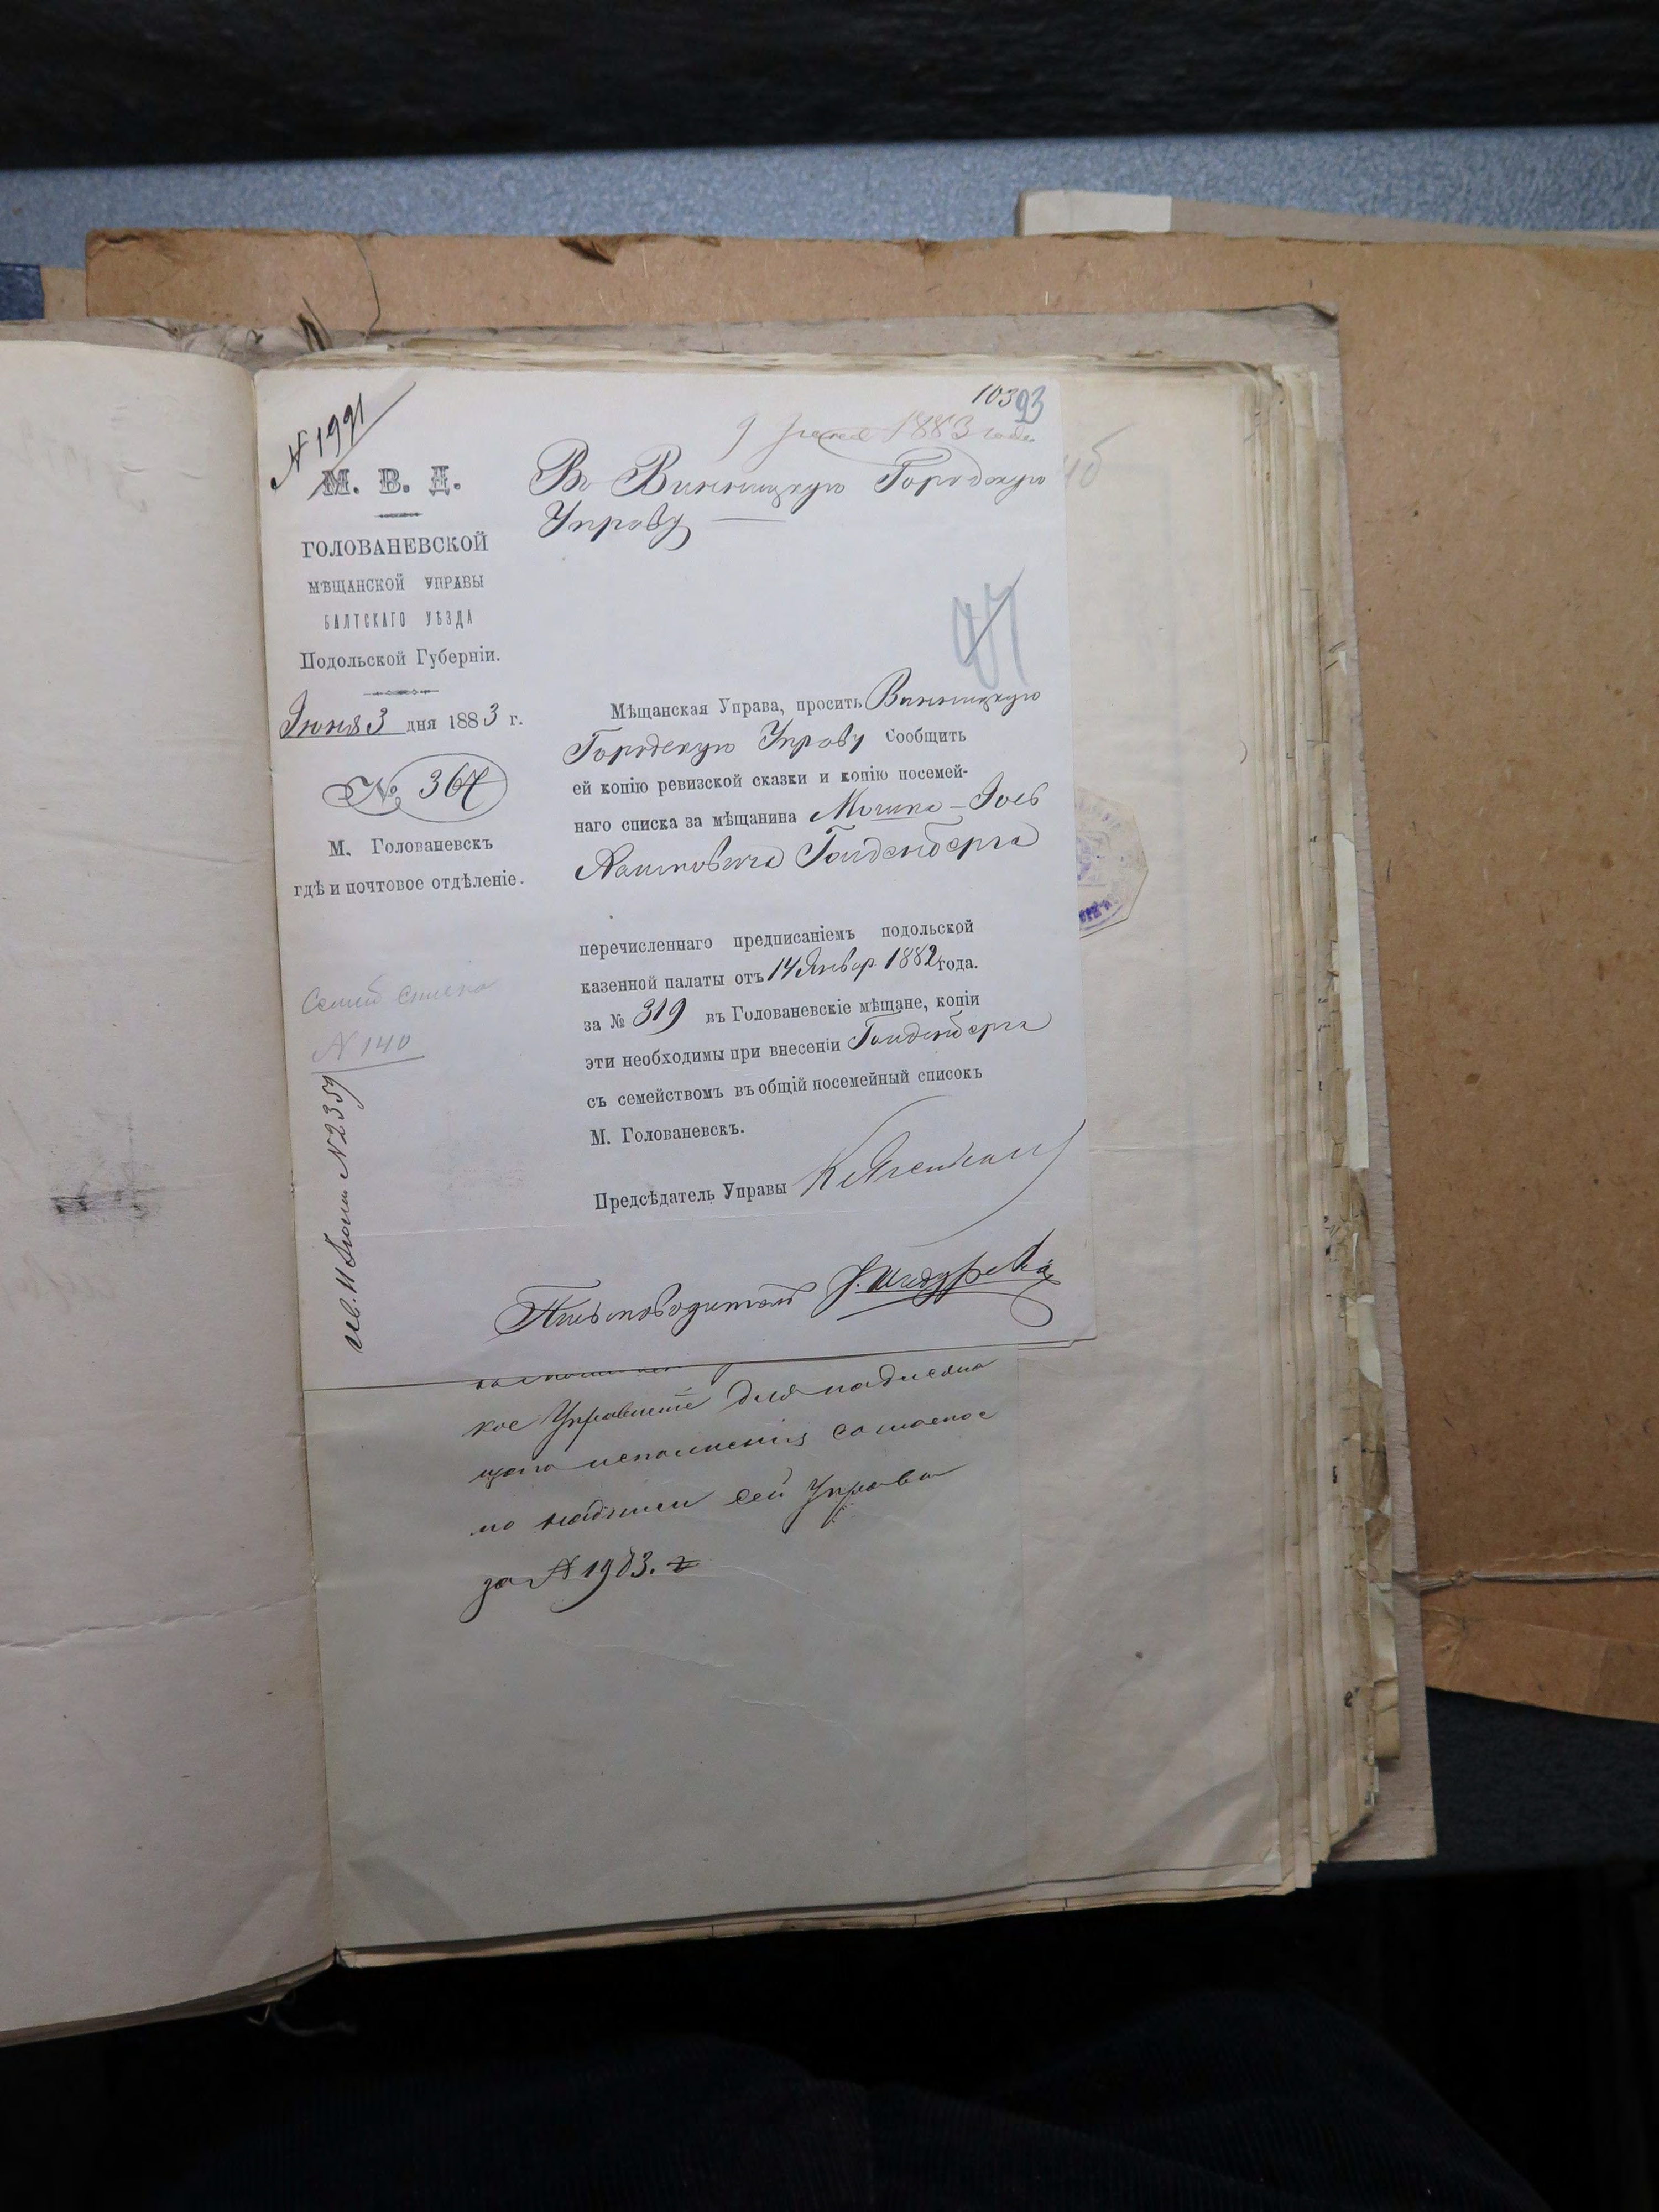 № 1991
М. В. Д.
ГОЛОВАНЕВСКОЙ
МѢЩАНСКОЙ УПРАВЫ
БАЛТСКАГО УѢЗДА
Подольской Губерніи.
Іюня 3 дня 1883 г.
№ 364
М. Голованевскъ
гдѣ и почтовое отдѣленіе.
№ 140
11 Іюня № 2359
103 93
9 Іюня 1883 года
Въ Винницкую Городскую
Управу
97
Мѣщанская Управа, проситъ Винницкую
Городскую Управу сообщить
ей копію ревизской сказки и копію посемей-
наго списка за мѣщанина Мошка-Іось
Гольденберга
перечисленнаго предписаніемъ подольской
казенной палаты отъ 14 Январ. 1882 года.
за № 319 въ Голованевскіе мѣщане, копіи
эти необходимы при внесеніи Гольденберга
съ семействомъ въ общій посемейный списокъ
М. Голованевскъ.
Предсѣдатель Управы
Письмоводитель
кое Управленіе для надлежа
щаго исполненія согласно
надписи сей Управы
за № 1983.